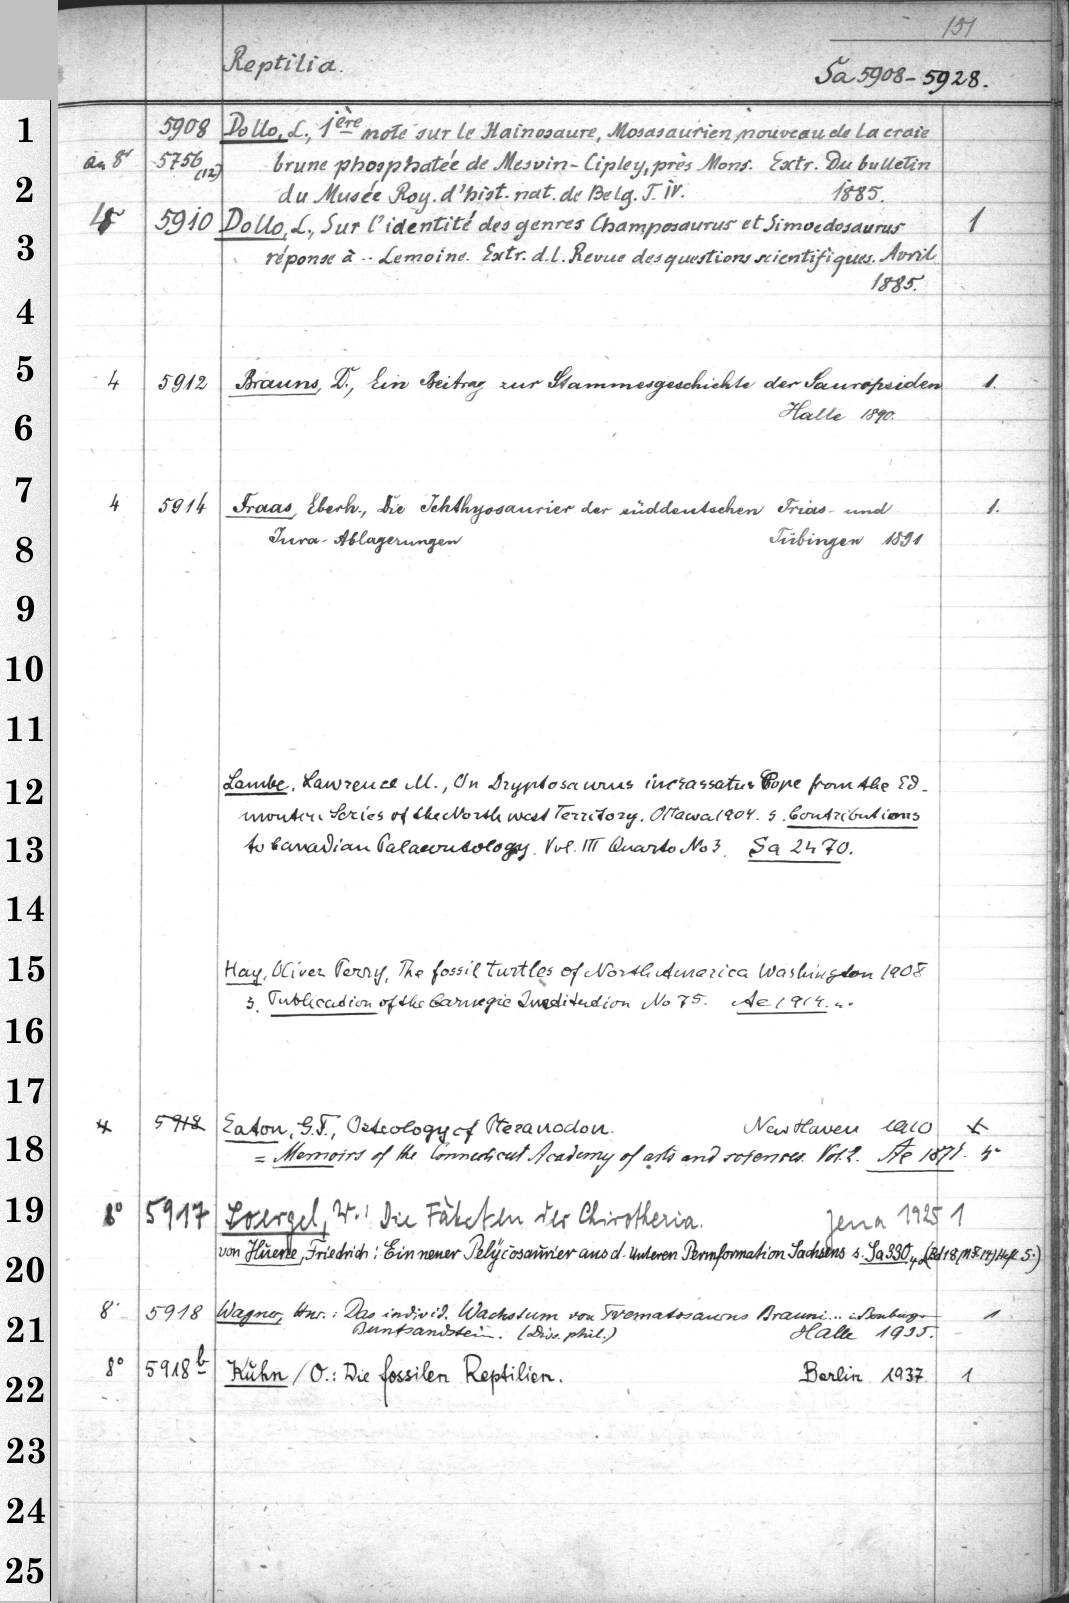 151
Reptilia.
Sa 5908-5928.
1 5908 Dollo, L., 1ère note sur le Hainosaure, Mosasaurien nouveau de la craie
an 8° 5756 (12) brune phosphatée de Mesvin-Cipley, près Mons. Extr. Du bulletin
2 du Musée Roy. d'hist. nat. de Belg. T. IV. 1885.
5910 Dollo, L., Sur l'identité des genres Champosaurus et Simoedosaurus 1
3 réponse à .. Lemoine. Extr. d. l. Revue des questions scientifiques. Avril
1885.
4
5 4 5912 Brauns, D., Ein Beitrag zur Stammesgeschichte der Sauropsiden 1.
6 Halle 1890.
7 4 5914 Fraas, Eberh., Die Ichthyosaurier der süddeutschen Trias- und 1.
8 Jura-Ablagerungen Tübingen 1891
9
10
11
12 Lambe, Lawrence M., On Dryptosaurus incrassatus Cope from the Ed-
monton Series of the North west Territory. Ottawa 1904. s. Contributions
13 to Canadian Palaeontology. Vol. III Quarto No 3. Sa 2470.
14
15 Hay, Oliver Perry, The fossil turtles of North America Washington 1908
s. Publication of the Carnegie Institution No 75. Ae 1914.
16
17
4 5918 Eaton, G.F., Osteology of Pteranodon. New Haven 1910
18 = Memoirs of the Connecticut Academy of arts and sciences. Vol. 2. Ae 1871. 4°
19 8° 5917 Soergel, W.: Die Fährten der Chirotheria. Jena 1925 1
20 von Huene, Friedrich: Ein neuer Pelycosaurier aus d. unteren Permformation Sachsens s. Sa 330, 4 (Bd 18, (N.F. 14) Heft 5.)
8° 5918 Wagner, Hnr.: Das individ. Wachstum von Trematosaurus Brauni... i. Bernburger 1
21 Buntsandstein. (Diss. phil.) Halle 1935.
22 8° 5918 b Kuhn / O.: Die fossilen Reptilien. Berlin 1937. 1
23
24
25